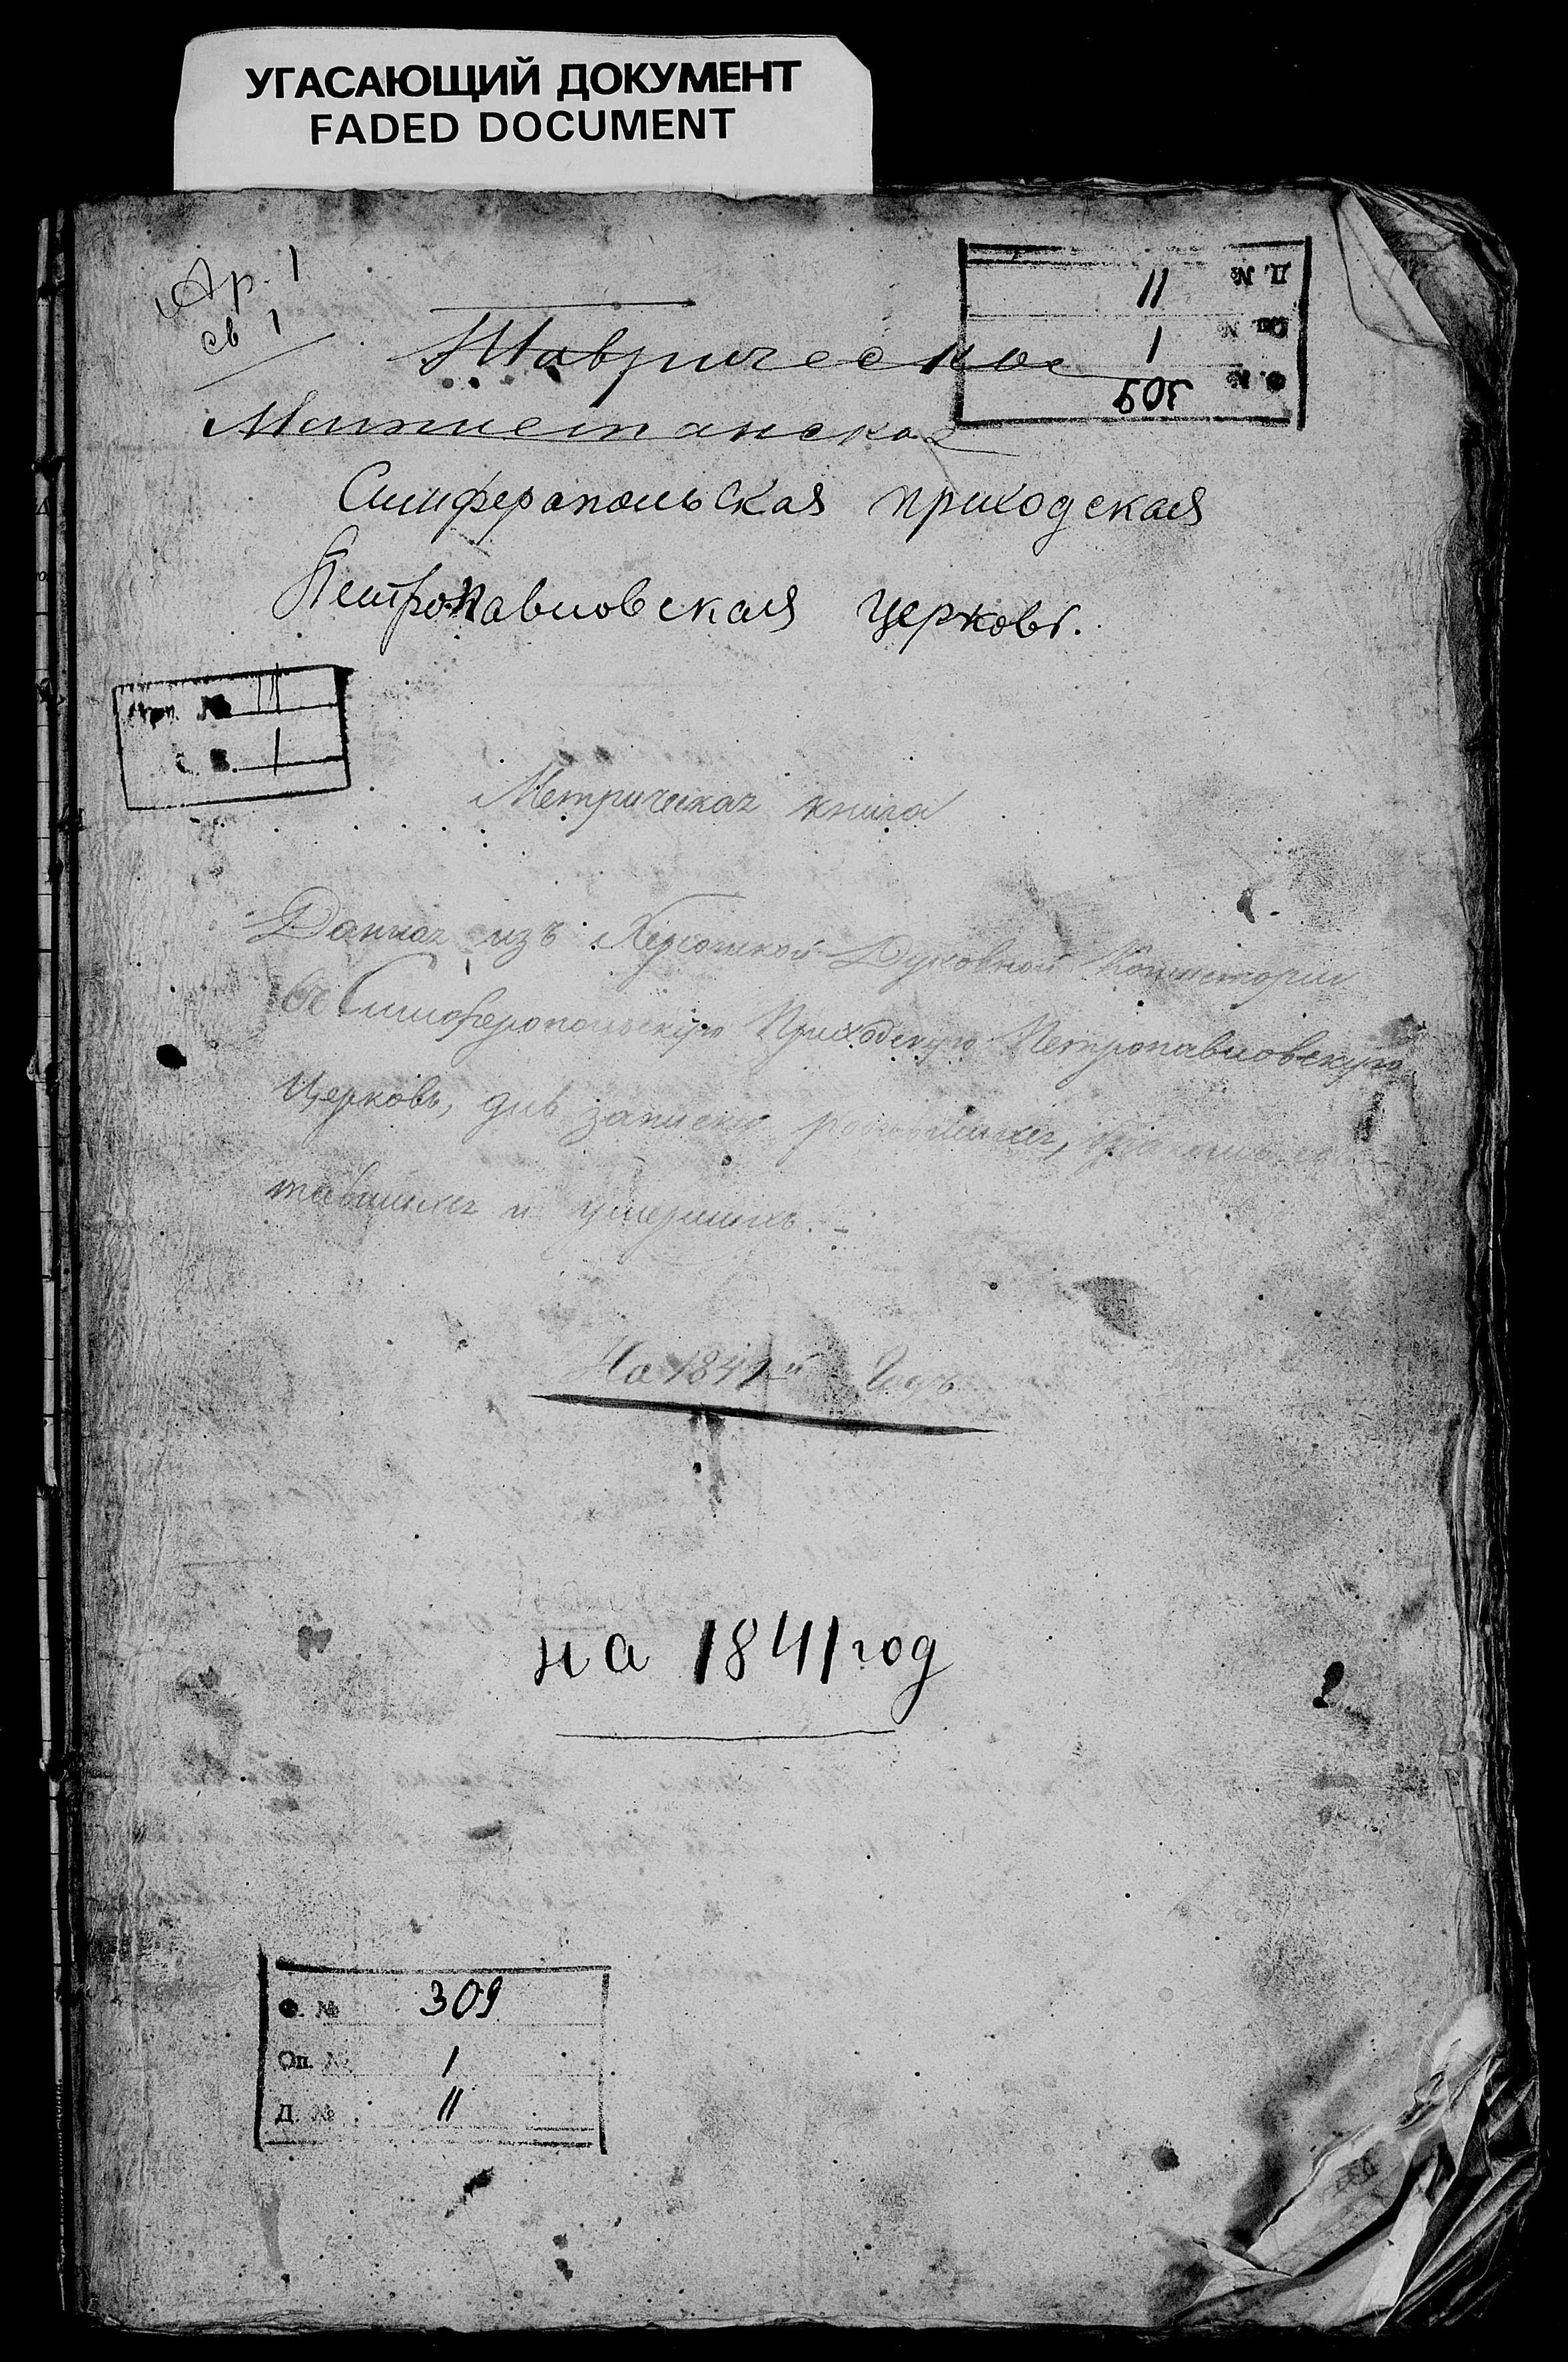 УГАСАЮЩИЙ ДОКУМЕНТ
FADED DOCUMENT
Ар. 1
св 1
Д. № 11
Оп. № 1
Ф. № 309
Таврическое
Симферопольская приходская
Петропавловская церковь.
Арх. № 11
1
Метрическая книга
Данная изъ Херсонской Духовной Консисторіи
въ Симферопольскую Приходскую Петропавловскую
Церковь, для записки родившихся, бракомъ соче
тавшихся и умершихъ.
На 1841й Годъ
на 1841 год
Ф. № 309
Оп. № 1
Д. № 11